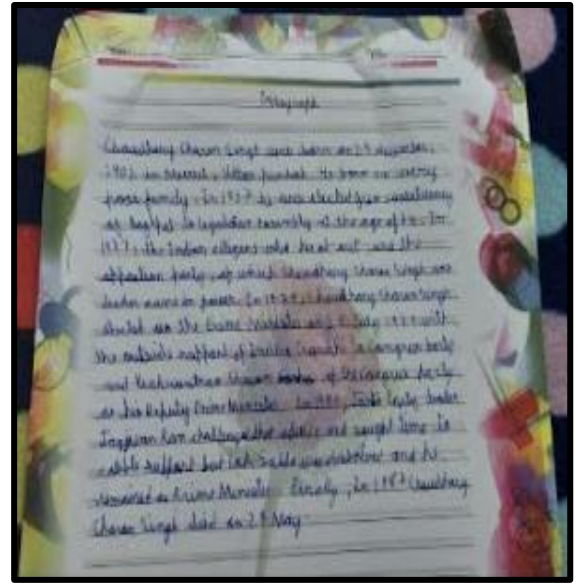 Paragraph
Chaudhary Charan Singh was born on 23 december,
1902 in Meerut, Uttar pradesh. He born in every
poor family. In 1937 he was elected from
of to legislative assembly at the age of In
1977, the Indian citizens who beat out the
opposition party, of which Chaudhary Charan Singh was
leader came in power. In 1979, Chaudhary Charan Singh
as the Prime Minister on July 1979 with
the outside support of Indira Gandhi's congress party
and Yashwantrao Chavan of the Congress party
as his Deputy Prime Minister. In 1980, Janta Party leader
Jagjivan Ram challenged that and sought time to
support but Lok Sabha was and he
remained as Prime Minister. Finaly, In 1987 Chaudhary
Charan Singh died on 29 May.